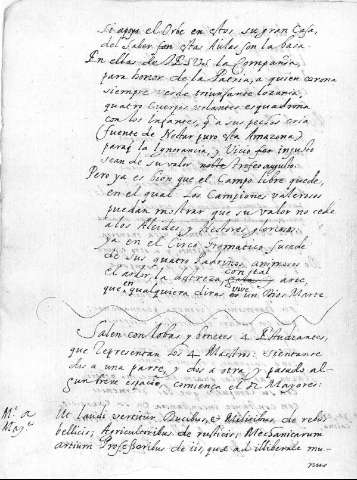 Si apoya el Orbe en esta su gran Casa,
del Saber son estas Aulas son la basa.
En ellas de IESVS la Compañia,
para honor de la Patria, a quien corona
siempre verde triunfante lozania,
quatro Cuerpos volantes esquadrona
con los Infantes, q a sus pechos cria
(fuente de Nectar puro esta Amazona)
paraq la Ignorancia, y Vicio
sean de su valor noble trofeo
Pero ya es bien que el Campo libre quede,
en el qual los Campiones valerosos
puedan mostrar que su valor no cede
a los Alcides, y Hectores gloriosos
ya en el Circo Gramatico sucede
de sus quatro Padrinos animosos
el ardor, la destreza con tal arte,
que en qualquiera diras vive un Dios Marte
Salen con lobas y bonetes 4 Estudiantes,
que representan los 4 Maestros: sientanse
dos a una parte, y dos a otra, y pasado al-
gun breve espacio, comiença el M. Mayores:
M.o de
May.es
Ut laudi vertitur Ducibus, et Militibus de rebus
bellicis; Agricultoribus de rusticis; Mechanicarum
artium Professoribus de iis, quæ ad illiberale mu-
nus